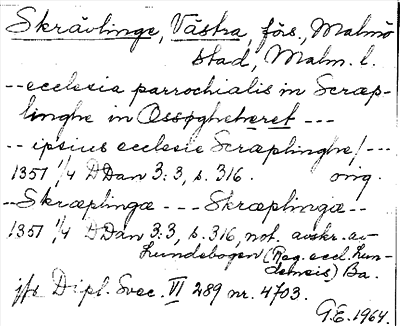 Skrävlinge, Västra, förs., Malmö
stad, Malm. l.
-- ecclesia parrochialis in Scræp-
linghe in Ossøgheheret ---
-- ipsius ecclesie Scræplinghe! ---
1351 1/4 DDan 3:3, s. 316. orig.
-- Skræplingæ --- Skræplingæ --
1351 1/4 DDan 3:3, s. 316, not. avskr. av
Lundebogen (Reg. eccl. Lun-
densis) Ba.
jfr Dipl. Svec. VI 289 nr. 4703.
G.E. 1964.